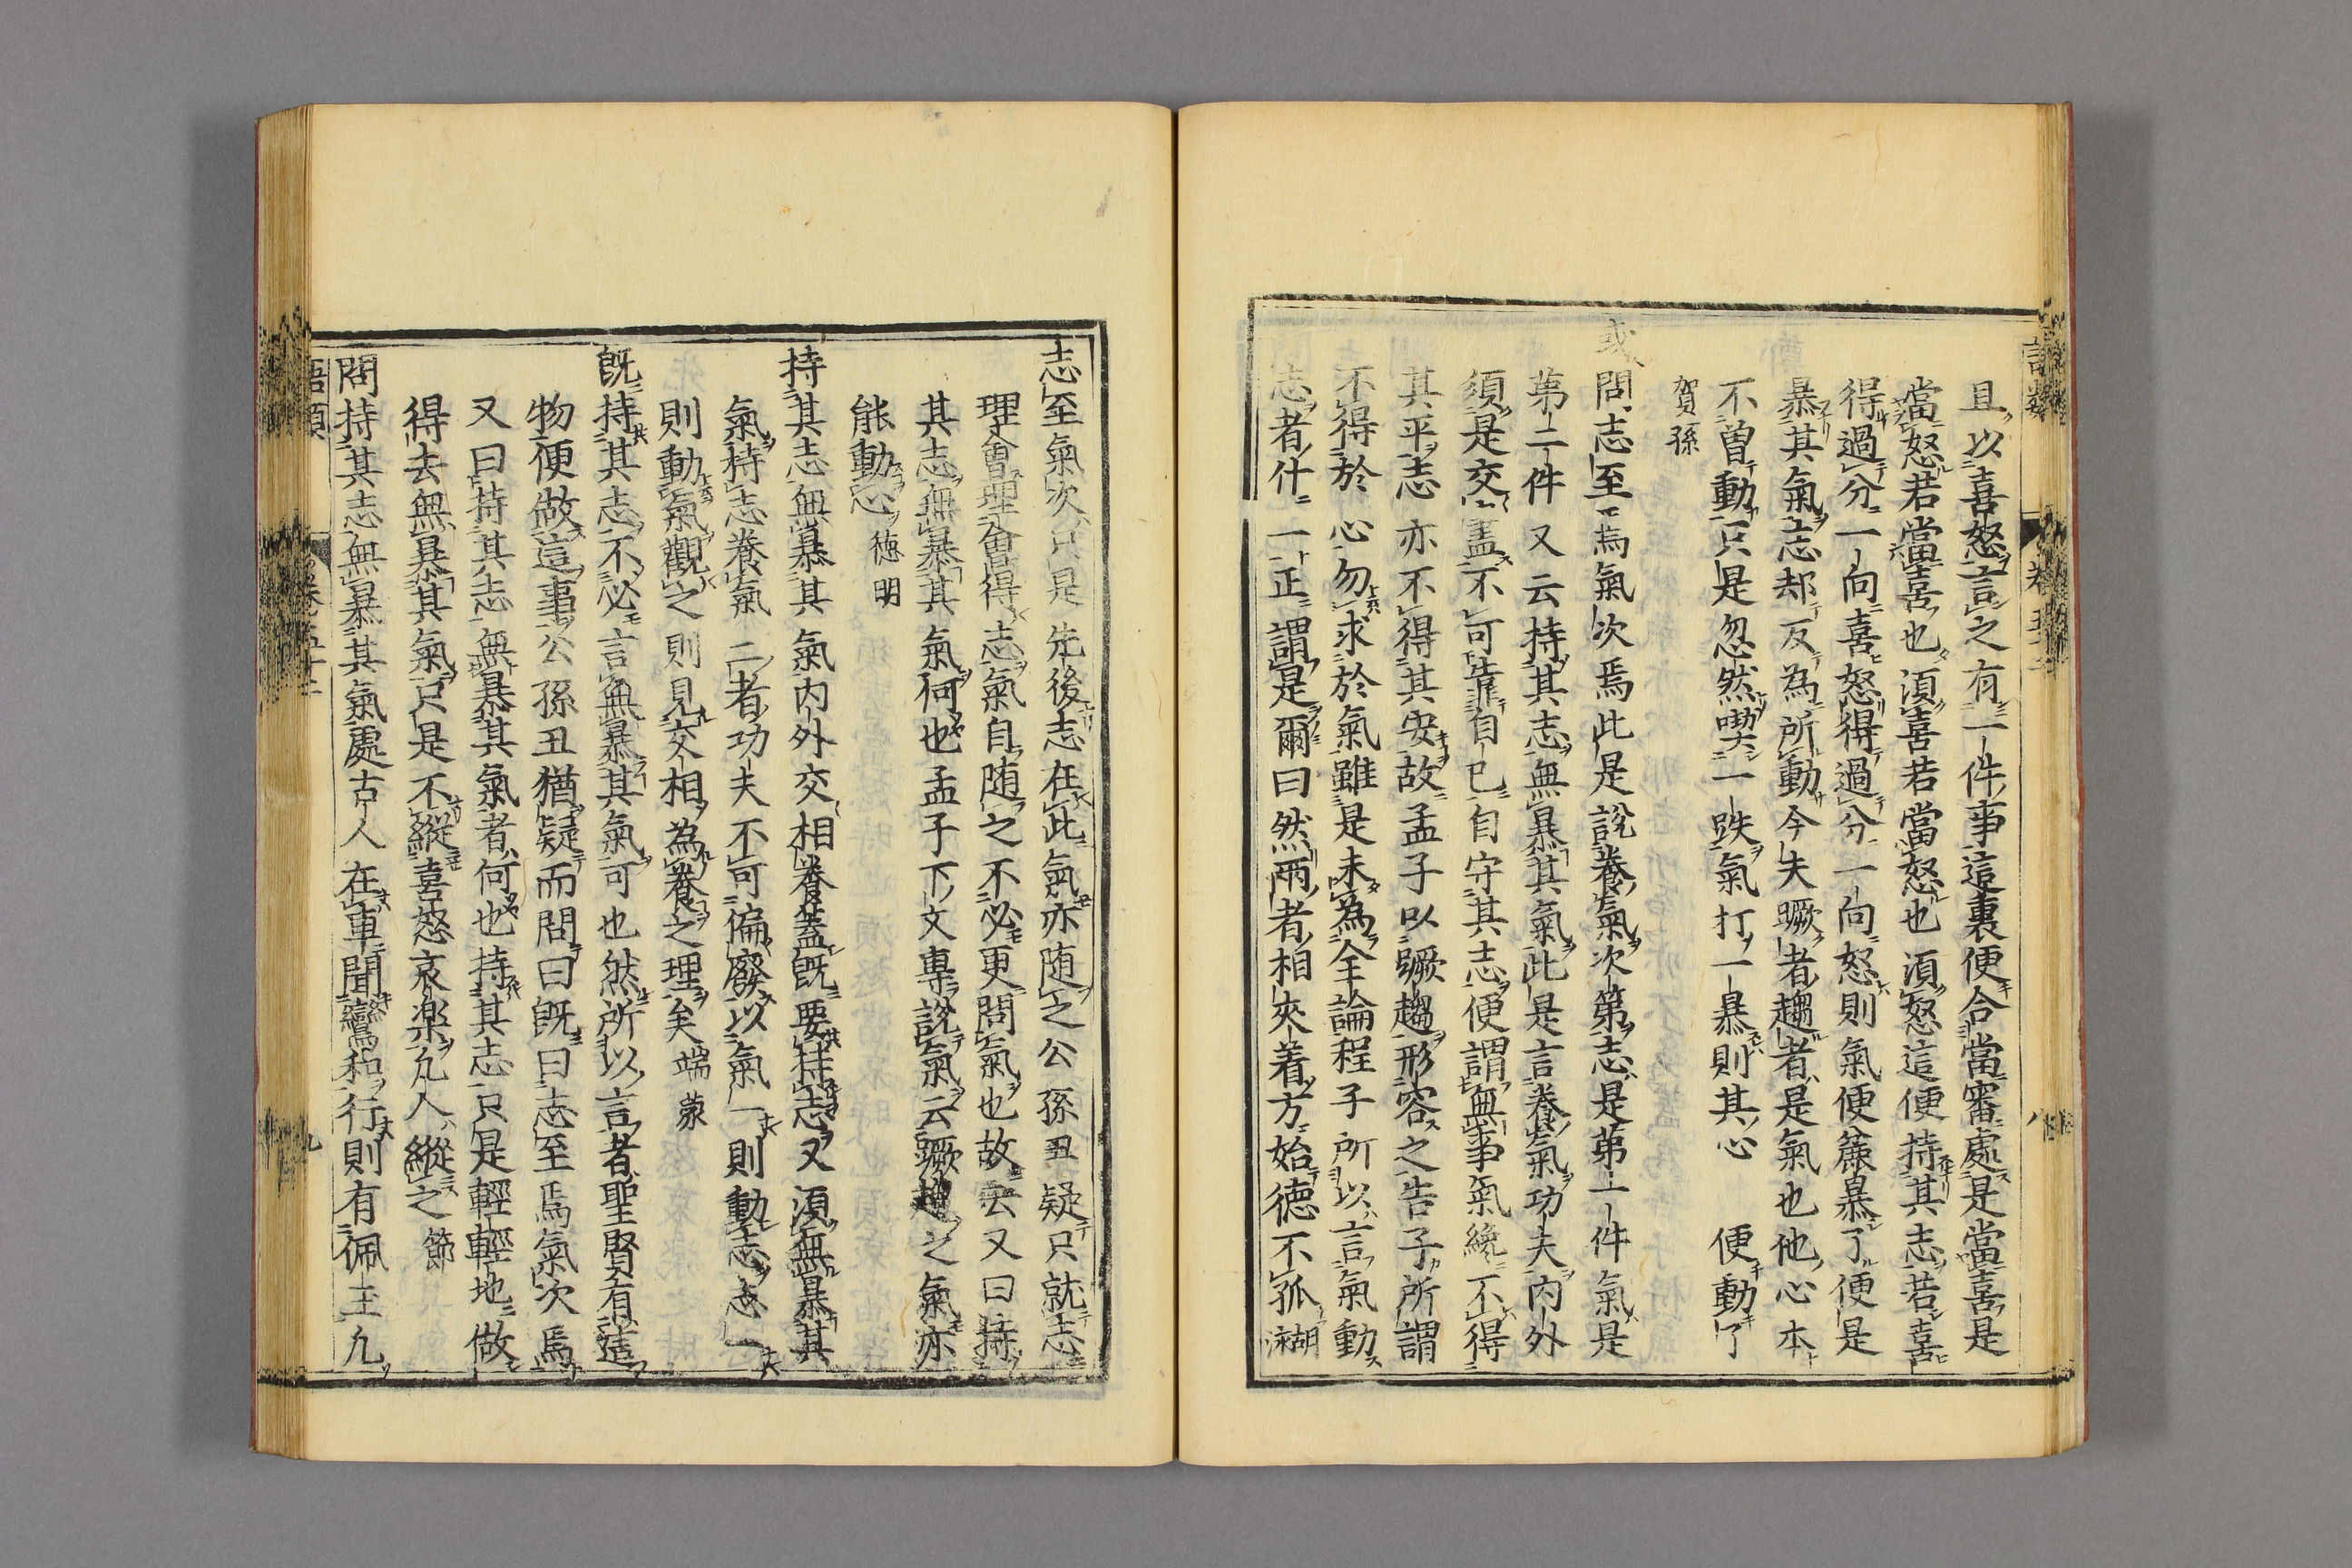 語類
卷五十二
八
且以喜怒言之有一件事這裏便合當審處是當喜是
當怒若當喜也須喜若當怒也須怒這便持其志若喜
得過分一向喜怒得過分一向怒則氣便麄暴了便是
暴其氣志却反為所動今夫蹶者趨者是氣也他心本
不曾動只是忽然喫一跌氣打一暴則其心便動了
賀孫
或問志至焉氣次焉此是說養氣次第志是第一件氣是
第二件又云持其志無暴其氣此是言養氣功夫內外
須是交盡不可靠自己自守其志便謂無事氣纔不得
其平志亦不得其安故孟子以蹶趨形容之告子所謂
不得於心勿求於氣雖是未為全論程子所以言氣動
志者什一正謂是爾曰然兩者相夾着方始德不孤 湖
志至氣次只是先後志在此氣亦随之公孫丑疑只就志
理會理會得志氣自随之不必更問氣也故云又曰持
其志無暴其氣何也孟子下文專說氣云蹶趨之氣亦
能動心 德明
持其志無暴其氣內外交相養蓋既要持志又須無暴其
氣持志養氣二者功夫不可偏廢以氣一則動志志一
則動氣觀之則見交相為養之理矣 端蒙
既持其志不必言無暴其氣可也然所以言者聖賢有這
物便做這事公孫丑猶疑而問曰既曰志至焉氣次焉
又曰持其志無暴其氣者何也持其志只是輕輕地做
得去無暴其氣只是不縱喜怒哀楽凡人縱之 節
問持其志無暴其氣處古人在車聞鸞和行則有佩玉凢
語類
卷五十二
九